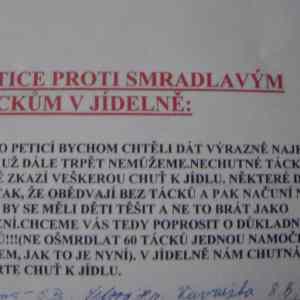 TICE PROTI SMRADLAVÝM
CKŮM V JÍDELNĚ:
O PETICÍ BYCHOM CHTĚLI DÁT VÝRAZNĚ NAJE
UŽ DÁLE TRPĚT NEMŮŽEME.NECHUTNÉ TÁCK
É ZKAZÍ VEŠKEROU CHUŤ K JÍDLU. NĚKTERÉ D
TAK, ŽE OBĚDVAJÍ BEZ TÁCKŮ A PAK NAČUNÍ N
BY SE MĚLI DĚTI TĚŠIT A NE TO BRÁT JAKO
ENÍ.CHCEME VÁS TEDY POPROSIT O DŮKLADN
Ů!!!(NE OŠMRDLAT 60 TÁCKŮ JEDNOU NAMOČE
EM, JAK TO JE NYNÍ). V JÍDELNĚ NÁM CHUTNÁ
RTE CHUŤ K JÍDLU.